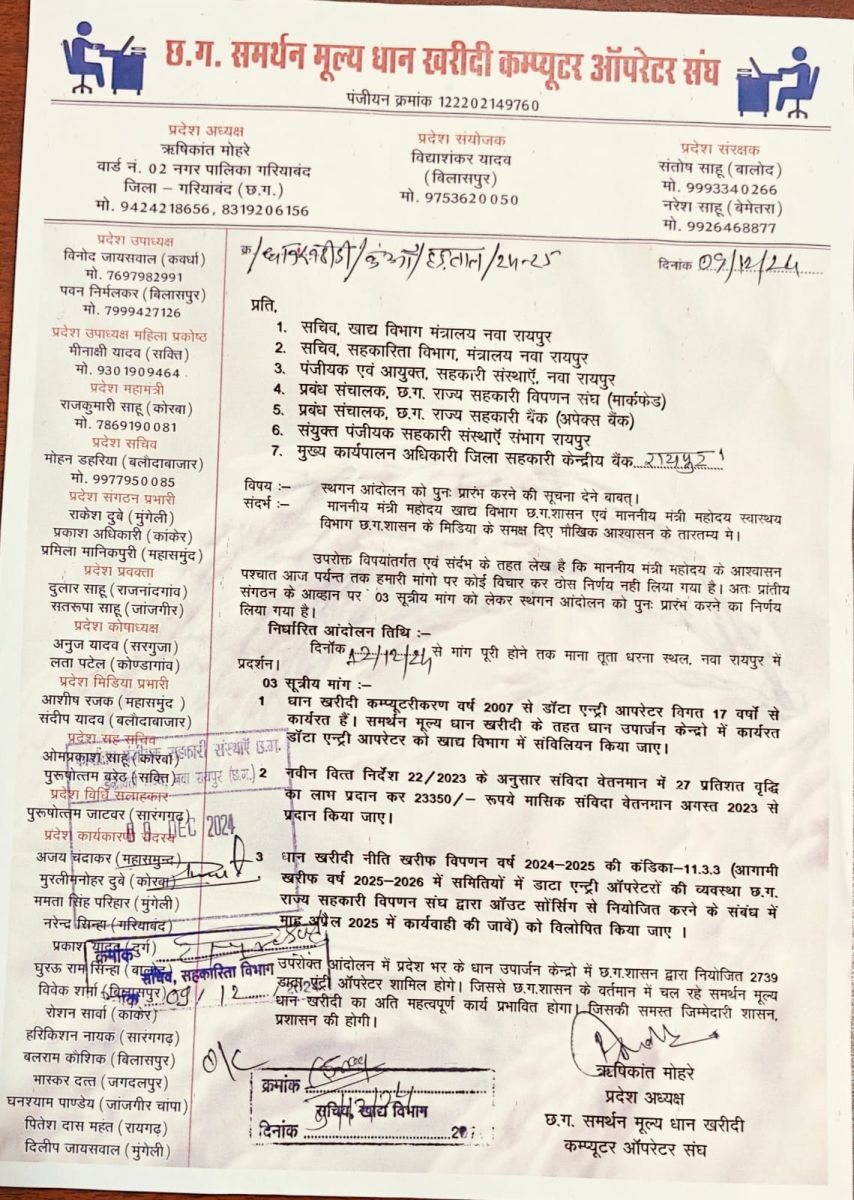 छ.ग. समर्थन मूल्य धान खरीदी कम्प्यूटर ऑपरेटर संघ
पंजीयन क्रमांक 122202149760
प्रदेश अध्यक्ष
ऋषिकांत मोहरे
वार्ड नं. 02 नगर पालिका गरियाबंद
जिला – गरियाबंद (छ.ग.)
मो. 9424218656, 8319206156
प्रदेश संयोजक
विद्याशंकर यादव
(बिलासपुर)
मो. 9753620050
प्रदेश संरक्षक
संतोष साहू (बालोद)
मो. 9993340266
नरेश साहू (बेमेतरा)
मो. 9926468877
प्रदेश उपाध्यक्ष
विनोद जायसवाल (कवर्धा)
मो. 7697982991
पवन निर्मलकर (बिलासपुर)
मो. 7999427126
प्रदेश उपाध्यक्ष महिला प्रकोष्ठ
मीनाक्षी यादव (सक्ति)
मो. 9301909464
प्रदेश महामंत्री
राजकुमारी साहू (कोरबा)
मो. 7869190081
प्रदेश सचिव
मोहन डहरिया (बलौदाबाजार)
मो. 9977950085
प्रदेश संगठन प्रभारी
राकेश दुबे (मुंगेली)
प्रकाश अधिकारी (कांकेर)
प्रमिला मानिकपुरी (महासमुंद)
प्रदेश प्रवक्ता
दुलार साहू (राजनांदगांव)
सतरूपा साहू (जांजगीर)
प्रदेश कोषाध्यक्ष
अनुज यादव (सरगुजा)
लता पटेल (कोण्डागांव)
प्रदेश मिडिया प्रभारी
आशीष रजक (महासमुंद)
संदीप यादव (बलौदाबाजार)
प्रदेश सह सचिव
ओमप्रकाश साहू (कोरबा)
पुरूषोत्तम बरेठ (सक्ति)
प्रदेश विधि सलाहकार
पुरूषोत्तम जाटवर (सारंगगढ़)
प्रदेश कार्यकारणी सदस्य
अजय चंद्राकर (महासमुन्द)
मुरलीमनोहर दुबे (कोरबा)
ममता सिंह परिहार (मुंगेली)
नरेन्द्र सिन्हा (गरियाबंद)
प्रकाश यादव (दुर्ग)
घुरऊ राम सिन्हा (बालोद)
विवेक शर्मा (बिलासपुर)
रोशन सार्वा (कांकेर)
हरिकिशन नायक (सारंगगढ़)
बलराम कौशिक (बिलासपुर)
भास्कर दत्त (जगदलपुर)
घनश्याम पाण्डेय (जांजगीर चांपा)
पितेश दास महंत (रायगढ़)
दिलीप जायसवाल (मुंगेली)
क्र/ /हड़ताल/24-25
दिनांक 09/12/24
प्रति,
1. सचिव, खाद्य विभाग मंत्रालय नवा रायपुर
2. सचिव, सहकारिता विभाग, मंत्रालय नवा रायपुर
3. पंजीयक एवं आयुक्त, सहकारी संस्थाऍ, नवा रायपुर
4. प्रबंध संचालक, छ.ग. राज्य सहकारी विपणन संघ (मार्कफेड)
5. प्रबंध संचालक, छ.ग. राज्य सहकारी बैंक (अपेक्स बैंक)
6. संयुक्त पंजीयक सहकारी संस्थाऍ संभाग रायपुर
7. मुख्य कार्यपालन अधिकारी जिला सहकारी केन्द्रीय बैंक रायपुर
विषय :– स्थगन आंदोलन को पुनः प्रारंभ करने की सूचना देने बाबत्।
संदर्भ :– माननीय मंत्री महोदय खाद्य विभाग छ.ग.शासन एवं माननीय मंत्री महोदय स्वास्थय
विभाग छ.ग.शासन के मिडिया के समक्ष दिए मौखिक आश्वासन के तारतम्य मे।
उपरोक्त विषयांतर्गत एवं संर्दभ के तहत लेख है कि माननीय मंत्री महोदय के आश्वासन
पश्चात आज पर्यन्त तक हमारी मांगो पर कोई विचार कर ठोस निर्णय नही लिया गया है। अतः प्रांतीय
संगठन के आव्हान पर 03 सूत्रीय मांग को लेकर स्थंगन आंदोलन को पुनः प्रारंभ करने का निर्णय
लिया गया है।
निर्धारित आंदोलन तिथि :–
दिनॉक 12/12/24 से मांग पूरी होने तक माना तूता धरना स्थल, नवा रायपुर में
प्रदर्शन।
03 सूत्रीय मांग :–
1 धान खरीदी कम्प्यूटरीकरण वर्ष 2007 से डॉटा एन्ट्री आपरेटर विगत 17 वर्षो से
कार्यरत हैं। समर्थन मूल्य धान खरीदी के तहत धान उपार्जन केन्द्रो में कार्यरत
डॉटा एन्ट्री आपरेटर को खाद्य विभाग में संविलियन किया जाए।
2 नवीन वित्त निर्देश 22/2023 के अनुसार संविदा वेतनमान में 27 प्रतिशत वृद्धि
का लाभ प्रदान कर 23350/– रूपये मासिक संविदा वेतनमान अगस्त 2023 से
प्रदान किया जाए।
3 धान खरीदी नीति खरीफ विपणन वर्ष 2024–2025 की कंडिका–11.3.3 (आगामी
खरीफ वर्ष 2025–2026 में समितियों में डाटा एन्ट्री ऑपरेटरों की व्यवस्था छ.ग.
राज्य सहकारी विपणन संघ द्वारा ऑउट सोंर्सिग से नियोजित करने के संबंध में
माह अप्रेल 2025 में कार्यवाही की जावें) को विलोपित किया जाए ।
उपरोक्त आंदोलन में प्रदेश भर के धान उपार्जन केन्द्रो में छ.ग.शासन द्वारा नियोजित 2739
डाटा एंट्री ऑपरेटर शामिल होगे। जिससे छ.ग.शासन के वर्तमान में चल रहे समर्थन मूल्य
धान खरीदी का अति महत्वपूर्ण कार्य प्रभावित होगा। जिसकी समस्त जिम्मेदारी शासन,
प्रशासन की होगी।
ऋषिकांत मोहरे
प्रदेश अध्यक्ष
छ.ग. समर्थन मूल्य धान खरीदी
कम्प्यूटर ऑपरेटर संघ
सहकारी संस्थाऍ छ.ग.
नवा रायपुर (छ.ग.)
DEC 2024
क्रमांक
सचिव, सहकारिता विभाग
09/12
O/C
क्रमांक
सचिव, खाद्य विभाग
दिनांक